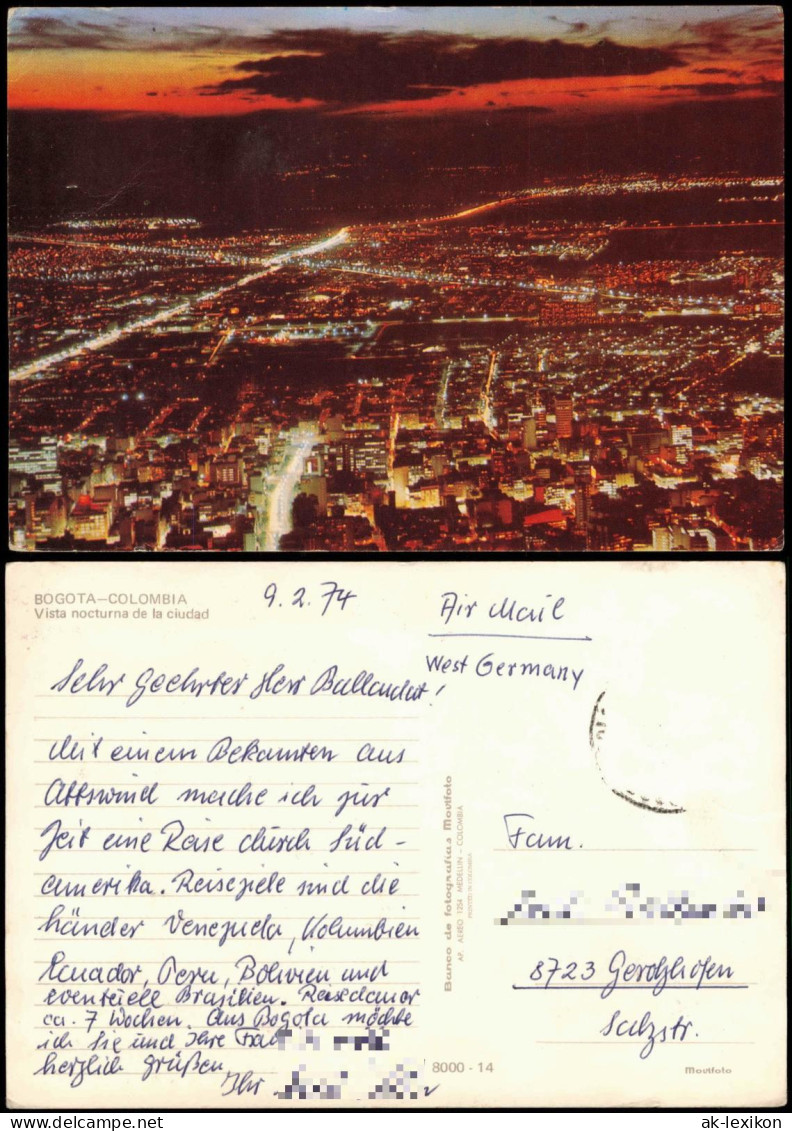 BOGOTA—COLOMBIA
Vista nocturna de la ciudad
9.2.74
Sehr geehrter Herr
Mit einem Bekannten aus
mache ich zur
Zeit eine Reise durch Süd-
amerika. Reiseziele sind die
Länder Venezuela, Kolumbien
Ecuador, Peru, Bolivien und
eventuell Brasilien. Reisedauer
ca. 7 Wochen. Aus Bogota möchte
ich Sie und Ihre Frau
herzlich grüßen
Ihr
Air Mail
West Germany
Fam.
8723 Gerolzhofen
Salzstr.
Banco de fotografías Movifoto
AP. AEREO 1254 MEDELLIN - COLOMBIA
8000 - 14
Movifoto
ak-lexikon.de
ak-lexikon